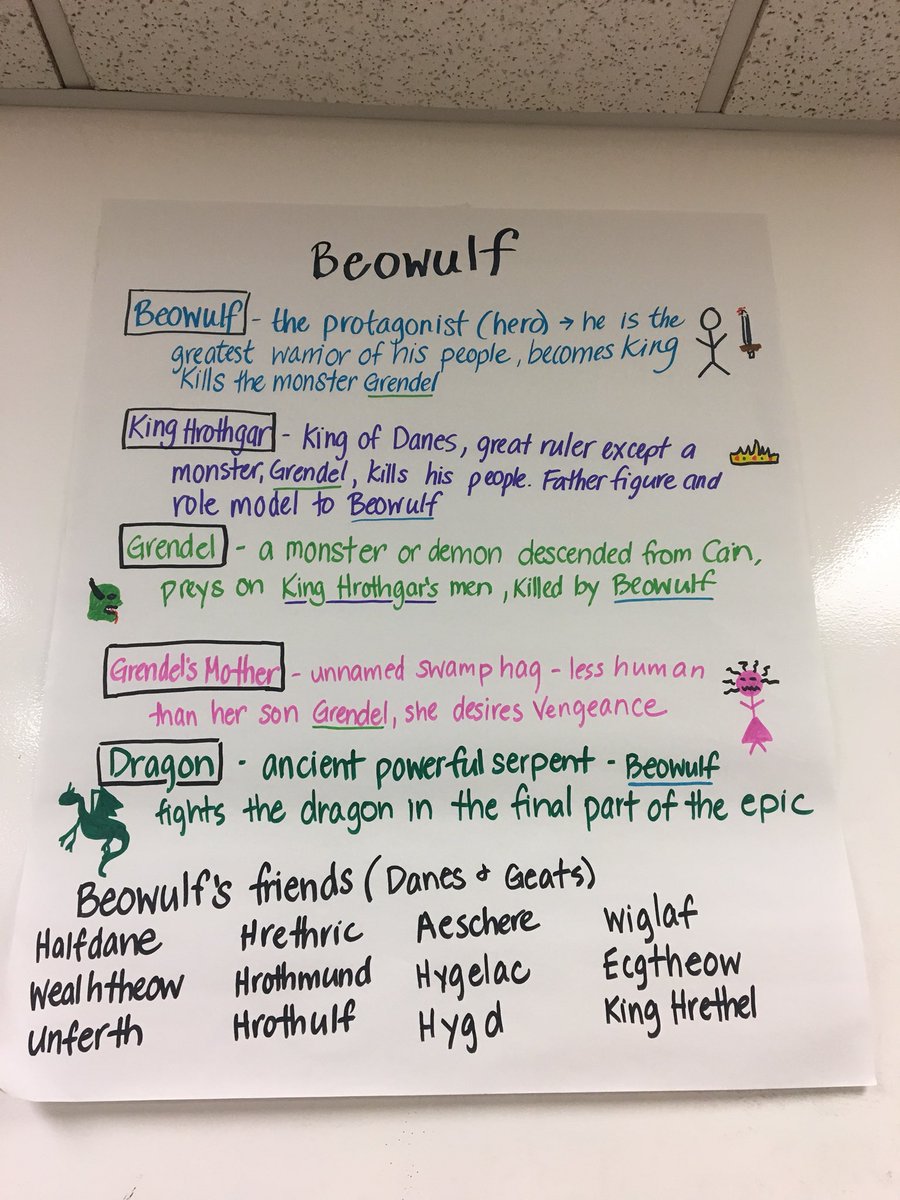 Beowulf
Beowulf - the protagonist (hero) → he is the
greatest warrior of his people, becomes King
Kills the monster Grendel
King Hrothgar - King of Danes, great ruler except a
monster, Grendel, kills his people. Father figure and
role model to Beowulf
Grendel - a monster or demon descended from Cain,
preys on King Hrothgar's men, killed by Beowulf
Grendel's Mother - unnamed swamp hag - less human
than her son Grendel, she desires vengeance
Dragon - ancient powerful serpent - Beowulf
fights the dragon in the final part of the epic
Beowulf's friends (Danes + Geats)
Halfdane Hrethric Aeschere Wiglaf
Wealhtheow Hrothmund Hygelac Ecgtheow
Unferth Hrothulf Hygd King Hrethel